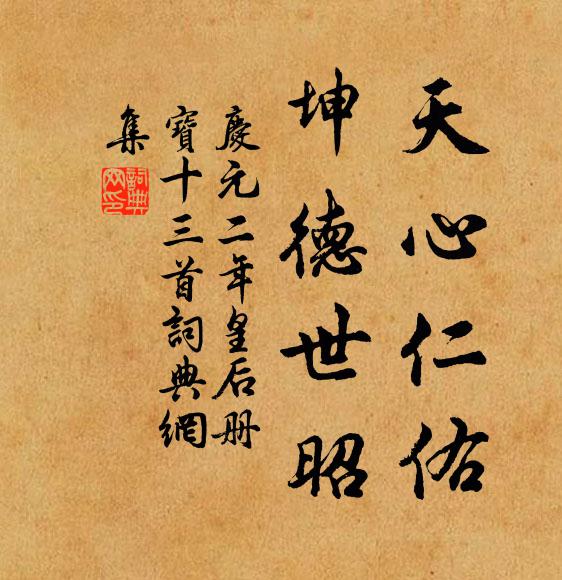 天心仁佑
坤德世昭
慶元二年皇后册
寶十三首詞典網
集
詞典
网印